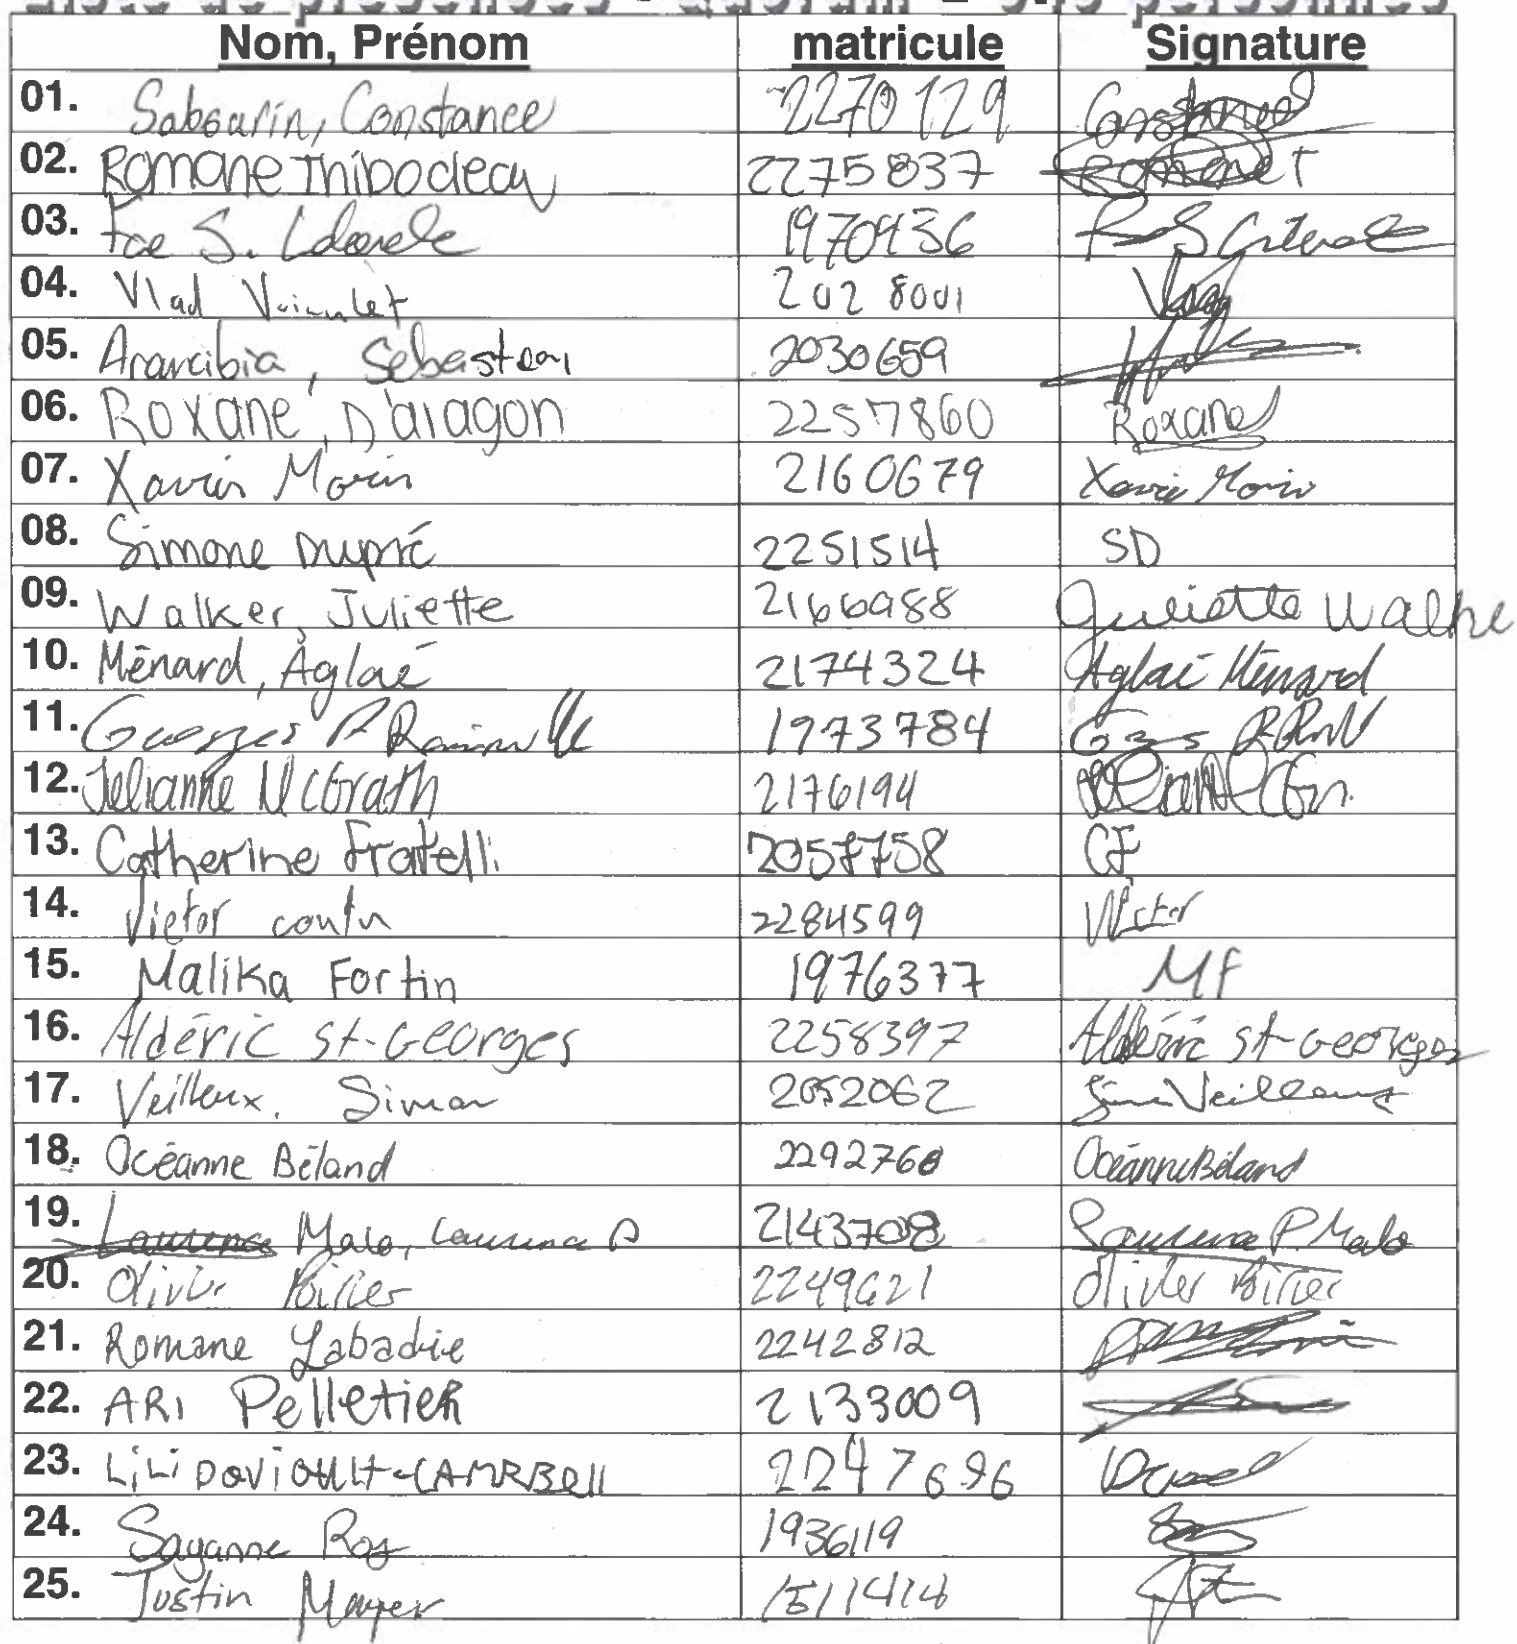 Liste de présences - Quorum
Nom, Prénom matricule Signature
01. Sabourin, Constance 2270129 Constance
02. Romane Thibodeau 2275837 Romane T
03. S. 1970936
04. Vlad 2028001 Vlad
05. Arancibia, Sebastian 2030659
06. Roxane, D'aragon 2257860 Roxane
07. Xavier Morin 2160679 Xavier Morin
08. Simone Dupré 2251514 SD
09. Walker, Juliette 2166988 Juliette Walke
10. Ménard, Aglaé 2174324 Aglaé Ménard
11. Georges P. Rainville 1973784
12. Jelianne McGrath 2176194
13. Catherine Fratelli 2057758 CF
14. Victor coutu 2284599 Victor
15. Malika Fortin 1976377 MF
16. Aldéric St-Georges 2258397 Aldéric St-Georges
17. Veilleux, Simon 2052062 Simon Veilleux
18. Océanne Béland 2292768 Océanne Béland
19. Laurence Malo, Laurence P 2143708 Laurence P. Malo
20. Olivier Poirier 2249621 Olivier Poirier
21. Romane Labadie 2242812
22. ARI Pelletier 2133009
23. LiLi DAViAULT-CAMPBell 2247696
24. Sayanne Roy 1936119
25. Justin Mayer 1511414